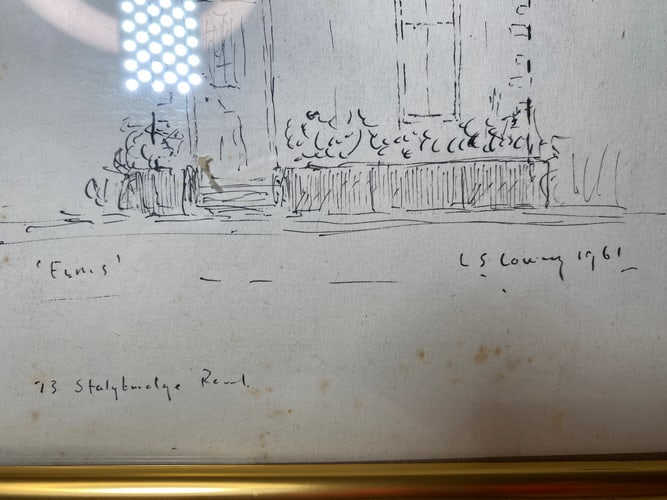 'Elms'
L S Lowry 1961
23 Stalybridge Road.